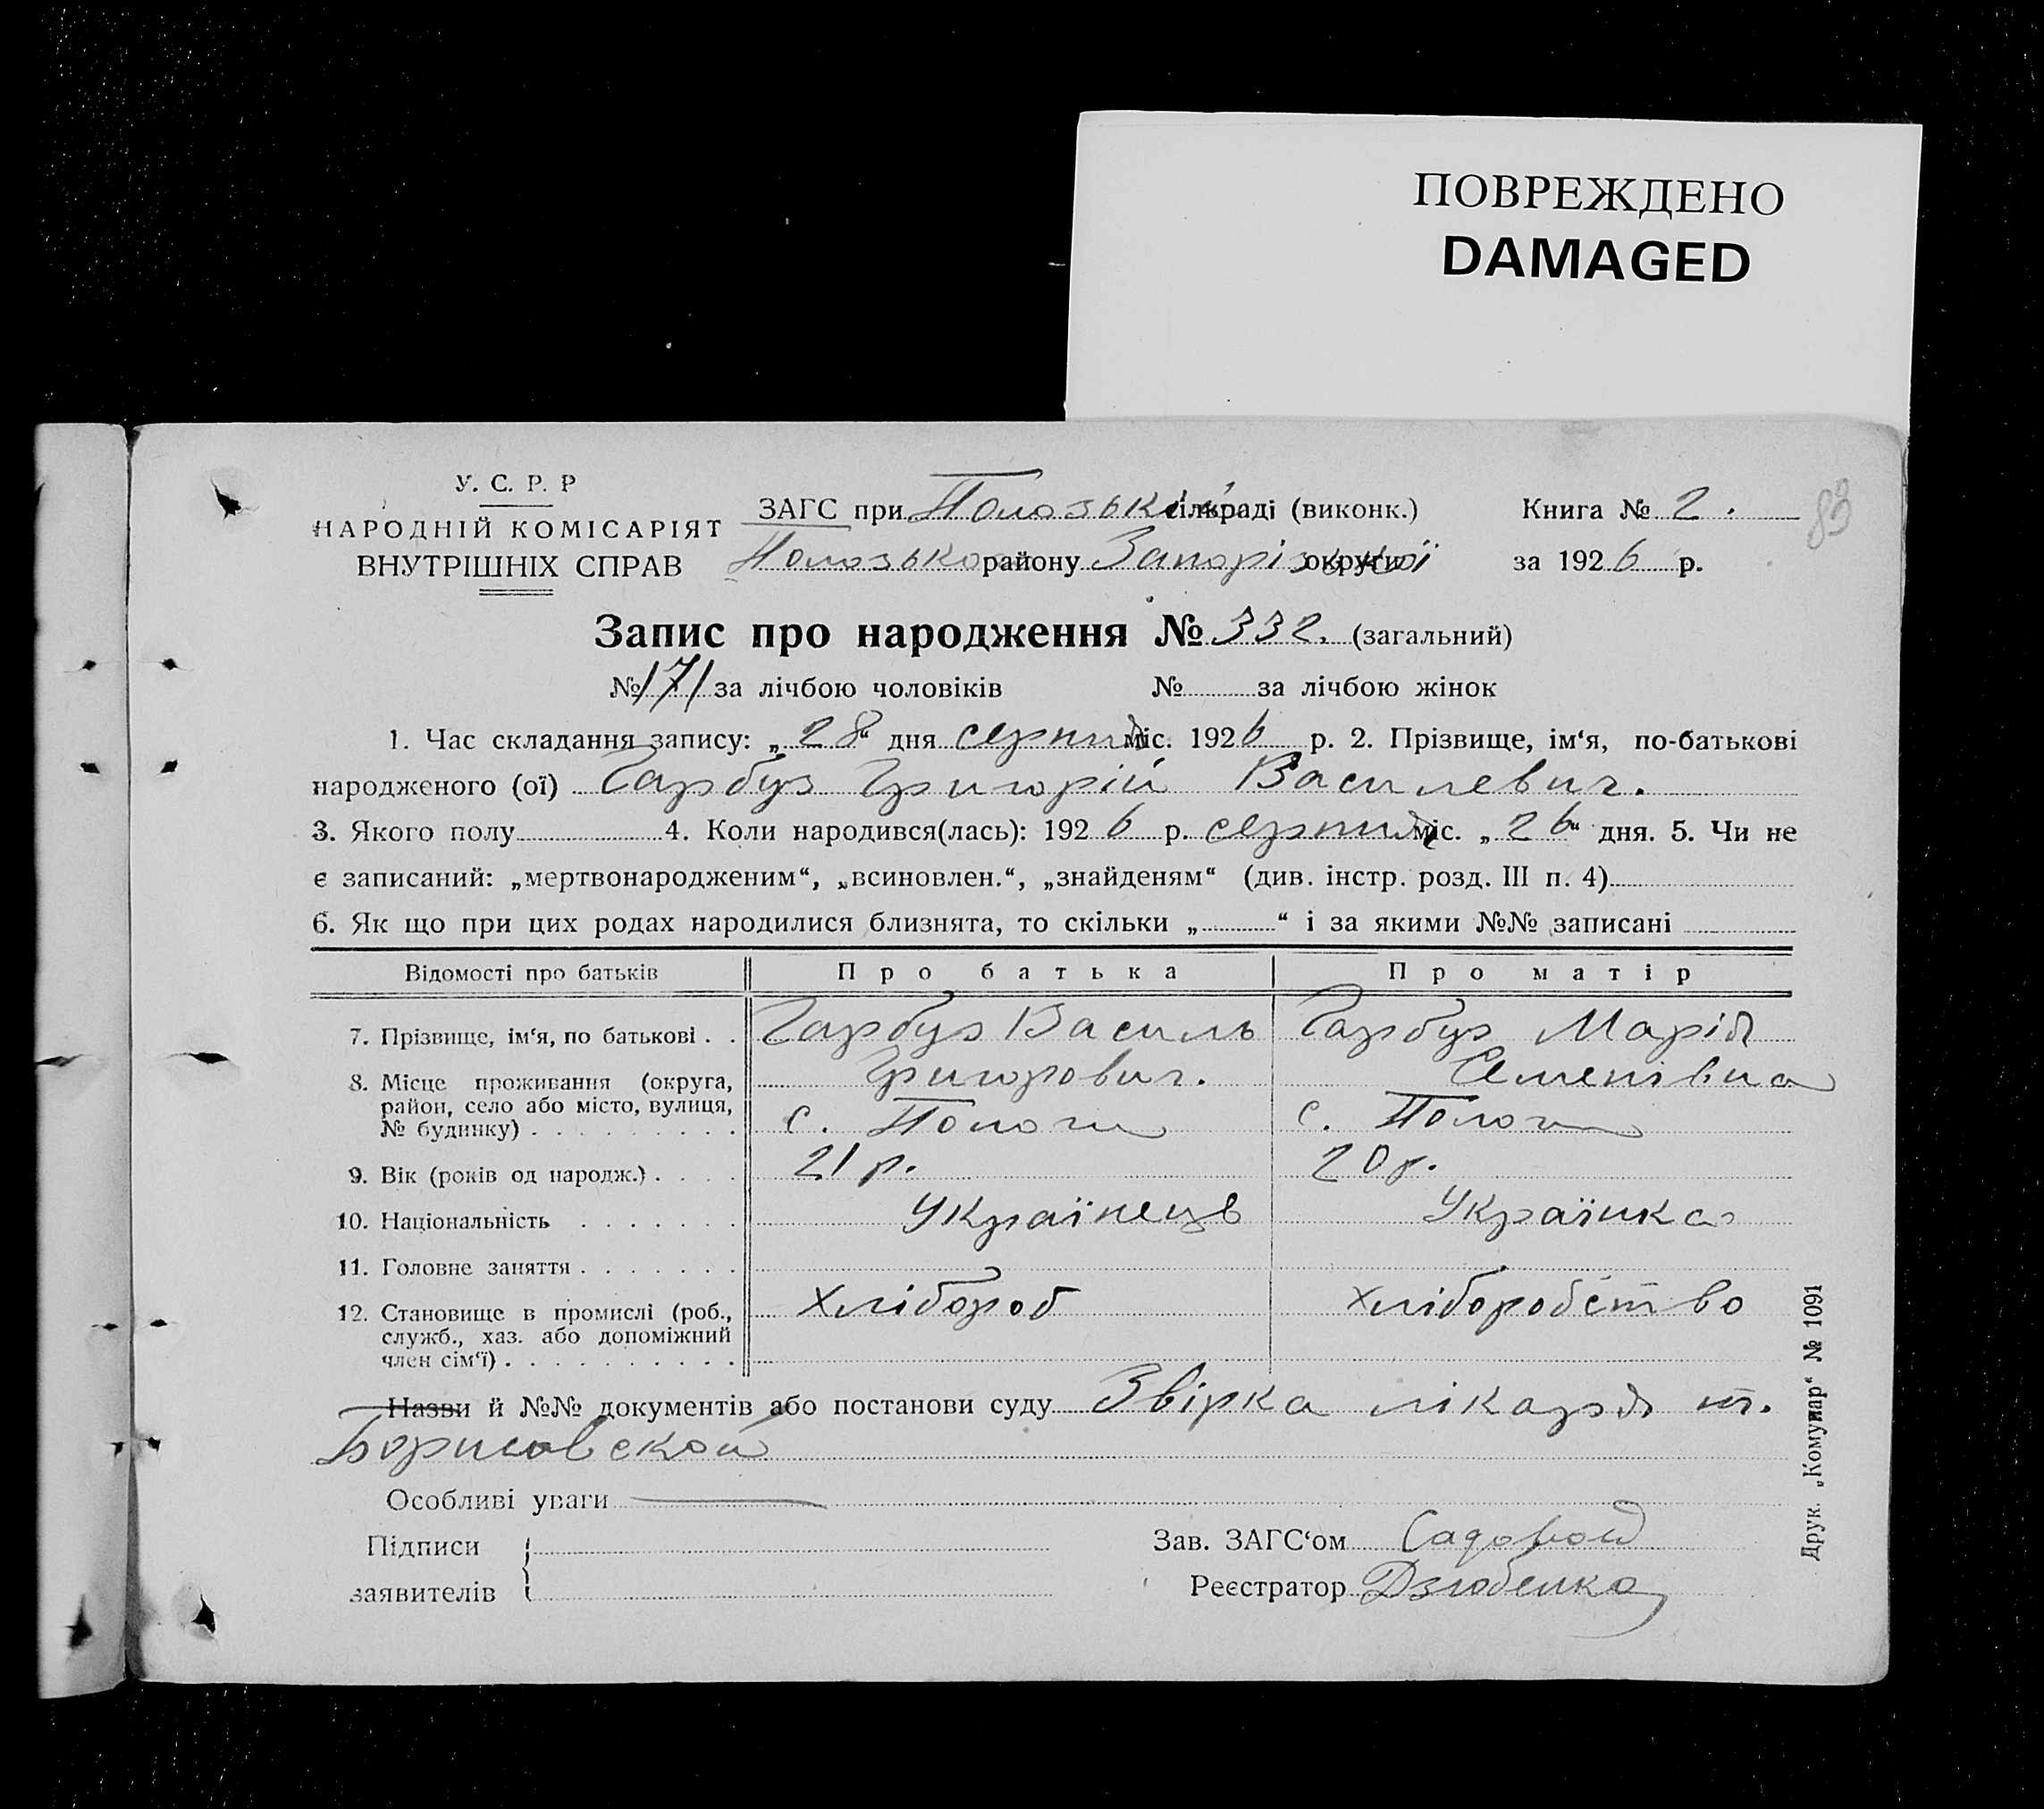 ПОВРЕЖДЕНО
DAMAGED
83
У. С. Р. Р
НАРОДНІЙ КОМІСАРІЯТ
ВНУТРІШНІХ СПРАВ
ЗАГС при Полозькій сільраді (виконк.)
Полозько району Запорізької округи
Книга № 2.
за 1926 р.
Запис про народження № 332. (загальний)
№ 171 за лічбою чоловіків № за лічбою жінок
1. Час складання запису: „28“ дня серпня міс. 1926 р. 2. Прізвище, ім‘я, по-батькові
народженого (ої) Гарбуз Григорій Василевич.
3. Якого полу 4. Коли народився(лась): 1926 р. серпня міс. „26“ дня. 5. Чи не
є записаний: „мертвонародженим“, „всиновлен.“, „знайденям“ (див. інстр. розд. III п. 4)
6. Як що при цих родах народилися близнята, то скільки „ “ і за якими №№ записані
Відомості про батьків Про батька Про матір
7. Прізвище, ім‘я, по батькові . . Гарбуз Василь Гарбуз Марія
Григорович. Семенівна
8. Місце проживання (округа,
район, село або місто, вулиця,
№ будинку) . . . . . . . . . с. Пологи с. Пологи
9. Вік (років од народж.) . . . . 21 р. 20 р.
10. Національність . . . . . . . Українець Українка
11. Головне заняття . . . . . . .
12. Становище в промислі (роб., хлібороб хліборобство
служб., хаз. або допоміжний
член сім‘ї) . . . . . . . . . .
Назви й №№ документів або постанови суду Звірка лікаря т.
Борисовской
Особливі уваги
Підписи
заявителів
Зав. ЗАГС‘ом Садовой
Реєстратор Дзюбенко
Друк. „Комунар“ № 1091